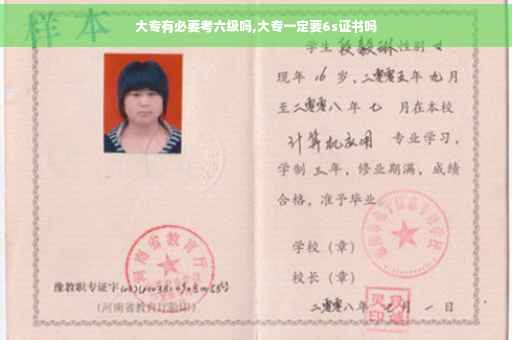 大专有必要考六级吗,大专一定要6s证书吗
样本
学生 段毅琳 性别 女
现年 16 岁，二零零五年 九 月
至二零零八年 七 月在本校
计算机应用 专业学习，
学制 三 年，修业期满，成绩
合格，准予毕业
学校（章）
校长（章）
二零零八年 七 月 一 日
河南省教育厅
豫教职专证字
(河南省教育厅验印)